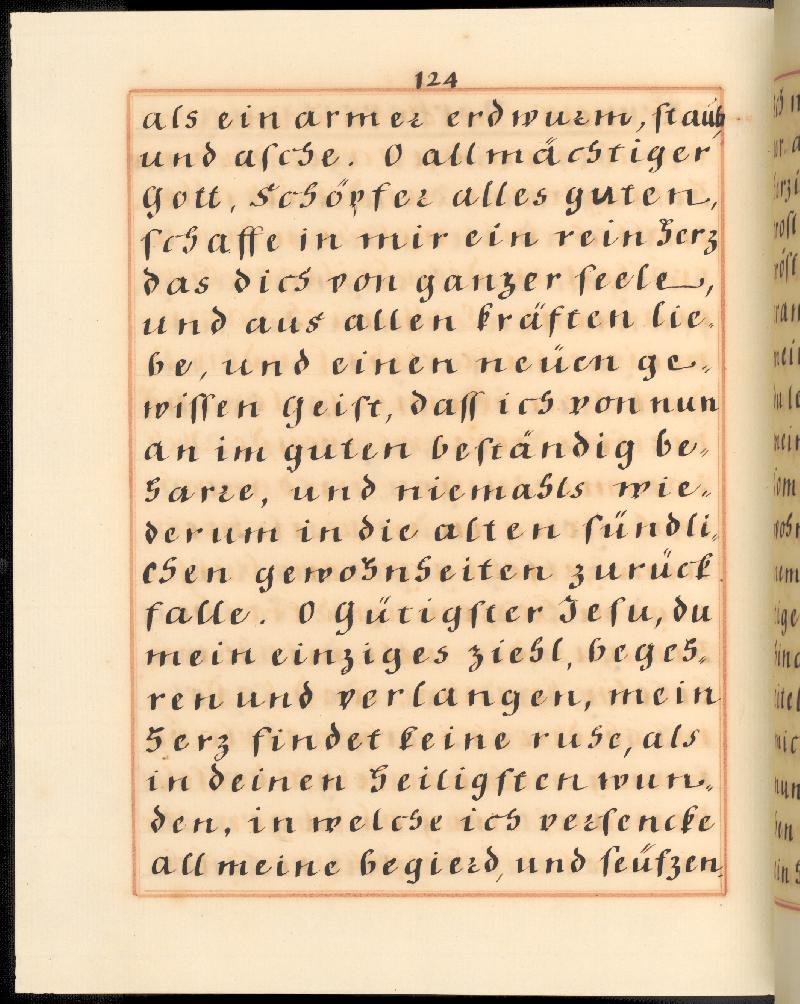 124
als ein armer erdwurm, staub
und asche. O allmächtiger
Gott, Schöpfer alles guten,
schaffe in mir ein rein herz
das dich von ganzer seele,
und aus allen kräften lie„
be, und einen neüen ge„
wissen Geist, dass ich von nun
an im guten beständig be„
harre, und niemahls wie„
derum in die alten sündli„
chen gewohnheiten zurück
falle. O Gütigster Jesu, du
mein einziges ziehl, begeh„
ren und verlangen, mein
herz findet keine ruhe, als
in deinen heiligsten wun„
den, in welche ich versencke
all meine begierd, und seüfzen,